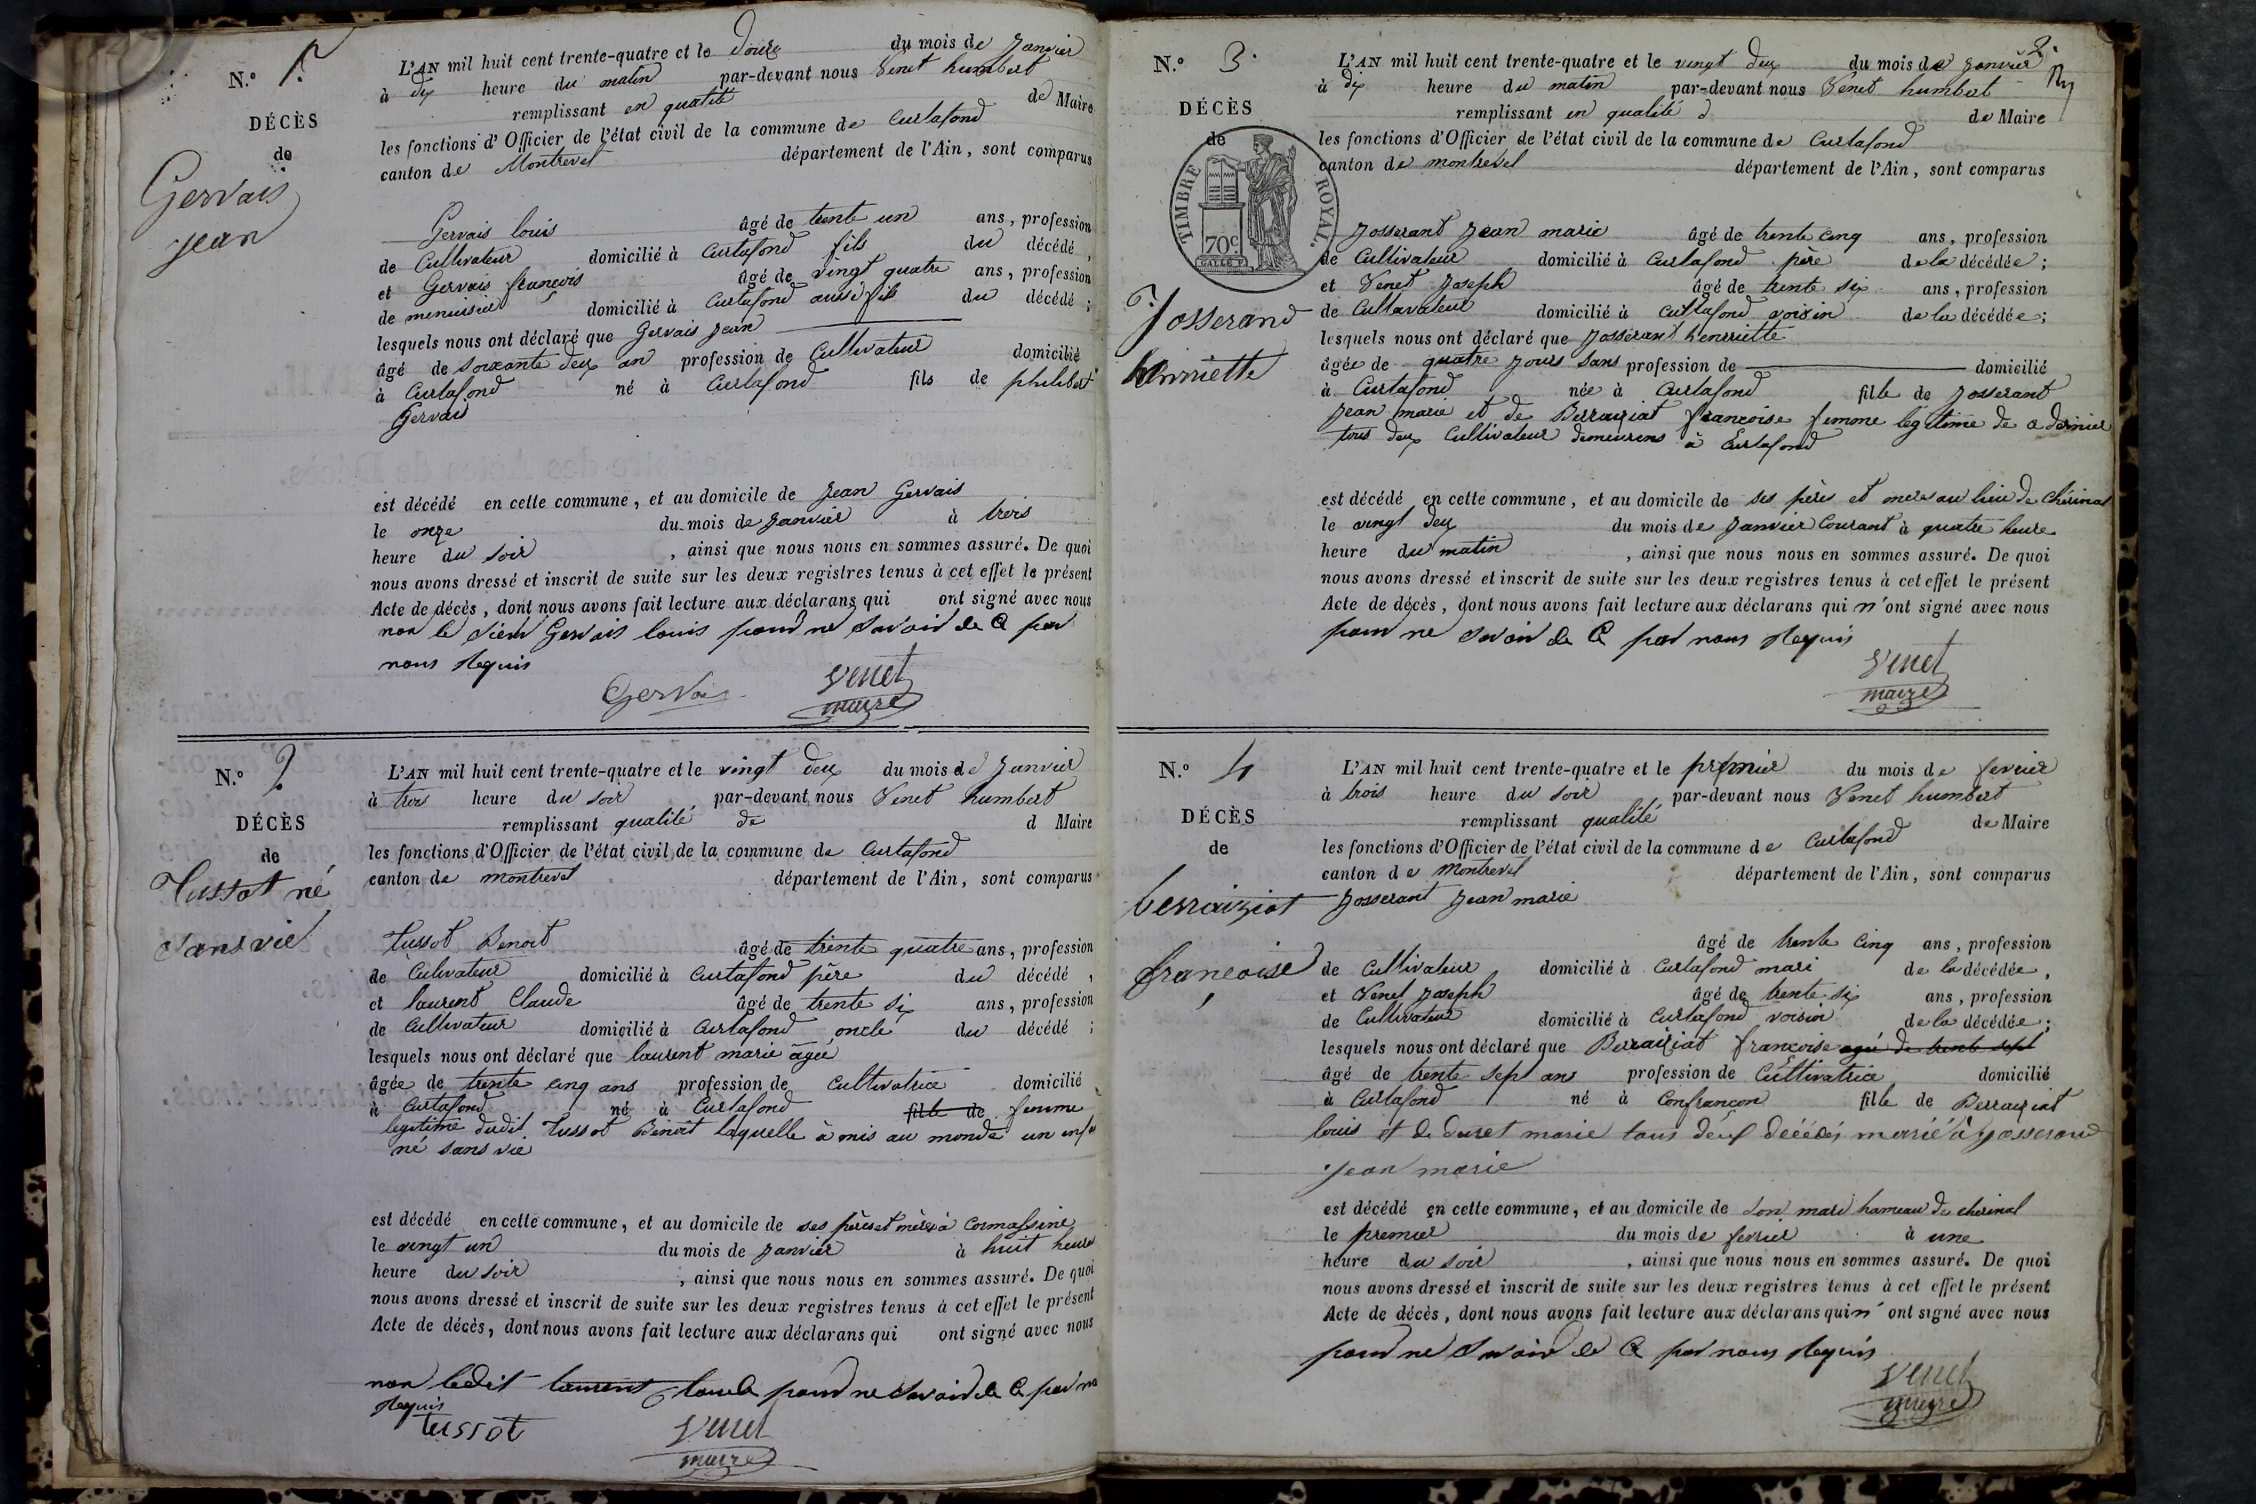 N.° 1.
DÉCÈS
de
Gervais
jean
L'AN mil huit cent trente-quatre et le douze du mois de janvier
à dix heure du matin par-devant nous Venet humbert
remplissant en qualité de Maire
les fonctions d'Officier de l'état civil de la commune de Curtafond
canton de Montrevel département de l'Ain, sont comparus
Gervais louis âgé de trente un ans, profession
de Cultivateur domicilié à Curtafond fils du décédé,
et Gervais françois âgé de vingt quatre ans, profession
de menuisier domicilié à Curtafond aussi fils du décédé;
lesquels nous ont déclaré que Gervais jean
âgé de soixante deux an profession de Cultivateur domicilié
à Curtafond né à Curtafond fils de philibert
Gervais
est décédé en cette commune, et au domicile de jean Gervais
le onze du mois de janvier à trois
heure du soir, ainsi que nous nous en sommes assuré. De quoi
nous avons dressé et inscrit de suite sur les deux registres tenus à cet effet le présent
Acte de décès, dont nous avons fait lecture aux déclarans qui ont signé avec nous
non le sieur Gervais louis pour ne savoir de Ce par
nous Requis
Gervais Venet
maire
N.° 2
DÉCÈS
de
Tussot né
sans vie
L'AN mil huit cent trente-quatre et le vingt deux du mois de janvier
à trois heure du soir par-devant nous Venet humbert
remplissant qualité de d Maire
les fonctions d'Officier de l'état civil de la commune de Curtafond
canton de montrevel département de l'Ain, sont comparus
Tussot Benoit âgé de trente quatre ans, profession
de Culivateur domicilié à Curtafond père du décédé,
et laurent Claude âgé de trente six ans, profession
de Cultivateur domicilié à Curtafond oncle du décédé;
lesquels nous ont déclaré que laurent marie âgée
âgée de trente cinq ans profession de Cultivatrice domicilié
à Curtafond né à Curtafond fille de femme
legitime dudit Tussot Benoit laquelle à mis au monde un enfa
né sans vie
est décédé en cette commune, et au domicile de ses pères et mères à
le vingt un du mois de janvier à huit heure
heure du soir, ainsi que nous nous en sommes assuré. De quoi
nous avons dressé et inscrit de suite sur les deux registres tenus à cet effet le présent
Acte de décès, dont nous avons fait lecture aux déclarans qui ont signé avec nous
non ledit laurent pour ne savoir de Ce par
Requis
tussot Venet
maire
2.
N.° 3.
DÉCÈS
de
TIMBRE ROYAL.
70c
Josserand
henriette
L'AN mil huit cent trente-quatre et le vingt deux du mois de janvier
à dix heure du matin par-devant nous Venet humbert
remplissant en qualité d de Maire
les fonctions d'Officier de l'état civil de la commune de Curtafond
canton de montrevel département de l'Ain, sont comparus
Josserant jean marie âgé de trente cinq ans, profession
de Cultivateur domicilié à Curtafond père de la décédée;
et Venet joseph âgé de trente six ans, profession
de Cultavateur domicilié à Curtafond voisin de la décédée;
lesquels nous ont déclaré que Josserant henrriette
âgée de quatre jours sans profession de domicilié
à Curtafond née à Curtafond fille de Josserant
jean marie et de Berraiziat françoise femme légitime de ce dernier
tous deux Cultivateur demeurens à Curtafond
est décédé en cette commune, et au domicile de ses pères et meres au lieu de Chérinal
le vingt deux du mois de janvier Courant à quatre heure
heure du matin, ainsi que nous nous en sommes assuré. De quoi
nous avons dressé et inscrit de suite sur les deux registres tenus à cet effet le présent
Acte de décès, dont nous avons fait lecture aux déclarans qui n'ont signé avec nous
pour ne savoir de Ce par nous Requis
Venet
maire
N.° 4
DÉCÈS
de
berraiziat
françoise
L'AN mil huit cent trente-quatre et le premier du mois de fevrier
à trois heure du soir par-devant nous Venet humbert
remplissant qualité de Maire
les fonctions d'Officier de l'état civil de la commune de Curtafond
canton de Montrevel département de l'Ain, sont comparus
Josserant jean marie
âgé de trente cinq ans, profession
de Cultivateur domicilié à Curtafond mari de la décédée,
et Venet joseph âgé de trente six ans, profession
de Cultivateur domicilié à Curtafond voisin de la décédée;
lesquels nous ont déclaré que Berraiziat françoise agée de trente sept
âgé de trente sept ans profession de Cultivatrice domicilié
à Curtafond né à Confrançon fille de Berraiziat
louis et de duret marie tous deux décédés marié à josserand
jean marie
est décédé en cette commune, et au domicile de son mari hameau de cherinal
le premier du mois de fevrier à une
heure du soir, ainsi que nous nous en sommes assuré. De quoi
nous avons dressé et inscrit de suite sur les deux registres tenus à cet effet le présent
Acte de décès, dont nous avons fait lecture aux déclarans qui n'ont signé avec nous
pour ne savoir de Ce par nous Requis
Venet
maire